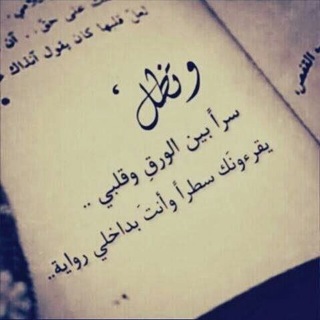 لعل قلبها كان يقول
وتظل ،
سراً بين الورقِ وقلبي ..
يقرءونَك سطراً وأنتَ بداخلي رواية..